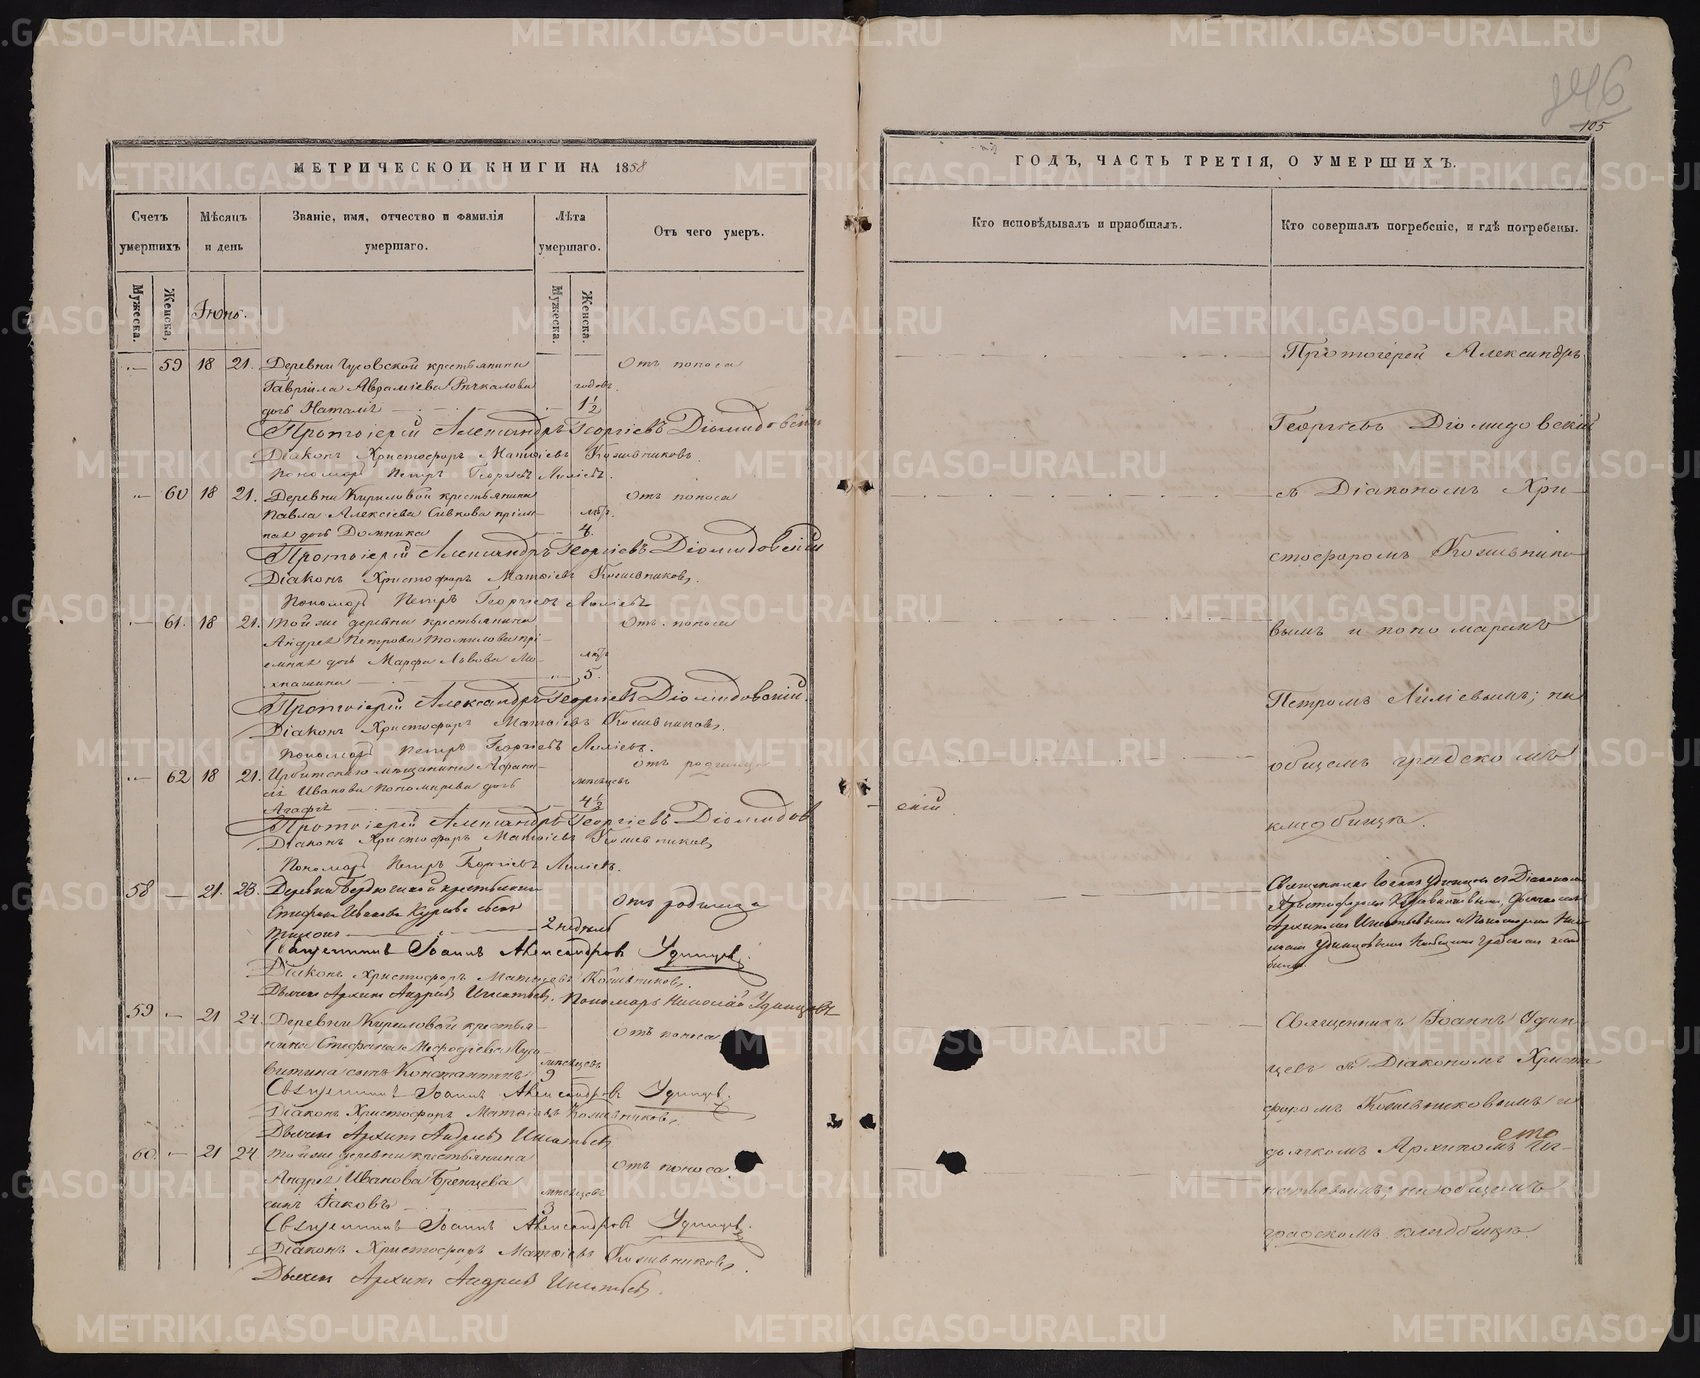 746
105
МЕТРИЧЕСКОЙ КНИГИ НА 1858
ГОДЪ, ЧАСТЬ ТРЕТІЯ, О УМЕРШИХЪ.
Счетъ умершихъ
Мѣсяцъ и день
Званіе, имя, отчество и фамилія умершаго.
Лѣта умершаго.
Отъ чего умеръ.
Кто исповѣдывалъ и пріобщалъ.
Кто совершалъ погребеніе, и гдѣ погребены.
Мужеска.
Женска,
Іюнь.
Мужеска.
Женска.
59 18 21. Деревни Чусовской крестьянина Отъ поноса
Гавріила Авраміева Речкалова годовъ.
дочь Наталія 1½
Протоіерей Александръ Георгіевъ Діомидовскій
Діаконъ Христофоръ Матѳіевъ Кожевниковъ.
Пономарь Петръ Георгіевъ Лиліевъ.
60 18 21. Деревни Кириловой крестьянина Отъ поноса
Павла Алексіева Сивкова пріем- лѣтъ.
ная дочь Домника 4.
Протоіерей Александръ Георгіевъ Діомидовскій
Діаконъ Христофоръ Матѳіевъ Кожевниковъ.
Пономарь Петръ Георгіевъ Лиліевъ
61. 18 21. Той же деревни крестьянина Отъ поноса
Андрея Петрова Томилова прі-
емная дочь Марфа Львова лѣтъ
5.
Протоіерей Александръ Георгіевъ Діомидовскій.
Діаконъ Христофоръ Матѳіевъ Кожевниковъ.
Пономарь Петръ Георгіевъ Лиліевъ.
62 18 21. Ирбитскаго мѣщанина Афана- отъ родимца
сія Иванова Пономарева дочь мѣсяцевъ
Агафія 4½
Протоіерей Александръ Георгіевъ Діомидов
скій
Діаконъ Христофоръ Матѳіевъ Кожевниковъ
Пономарь Петръ Георгіевъ Лиліевъ.
58 21. 23. Деревни Бердюгиной крестьянина отъ родимца
Стефана Иванова сынъ
Тихонъ 2 недѣль
Священникъ Іоаннъ Александровъ Удинцевъ.
Діаконъ Христофоръ Матѳіевъ Кожевниковъ.
Дьячекъ Архипъ Андреевъ Игнатьевъ. Пономарь Николай Удинцевъ
59 21 24. Деревни Кириловой крестья- отъ поноса
нина Стефана Меѳодіева
сынъ Константинъ мѣсяцевъ 9
Священникъ Іоаннъ Александровъ Удинцевъ.
Діаконъ Христофоръ Матѳіевъ Кожевниковъ.
Дьячекъ Архипъ Андреевъ Игнатьевъ
60. 21 24 Той же деревни крестьянина отъ поноса
Андрея Иванова Бренцева мѣсяцевъ
сынъ Іаковъ 3
Священникъ Іоаннъ Александровъ Удинцевъ.
Діаконъ Христофоръ Матѳіевъ Кожевниковъ.
Дьячекъ Архипъ Андреевъ Игнатьевъ.
Протоіерей Александръ
Георгіевъ Діомидовскій
съ Діакономъ Хри-
стофоромъ Кожевнико-
вымъ и пономаремъ
Петромъ Лиліевымъ; на
общемъ градскомъ
кладбищѣ.
Священникъ Іоаннъ Удинцевъ съ Діакономъ
Христофоромъ Кожевниковымъ, Дьячкомъ
Архипомъ Игнатьевымъ и Пономаремъ Нико-
лаемъ Удинцевымъ на общемъ градскомъ клад-
бищѣ.
Священникъ Іоаннъ Удин-
цевъ съ Діакономъ Христо
форомъ Кожевниковымъ и
дьячкомъ Архипомъ Иг-
натьевымъ; на общемъ
градскомъ кладбищѣ.
METRIKI.GASO-URAL.RU